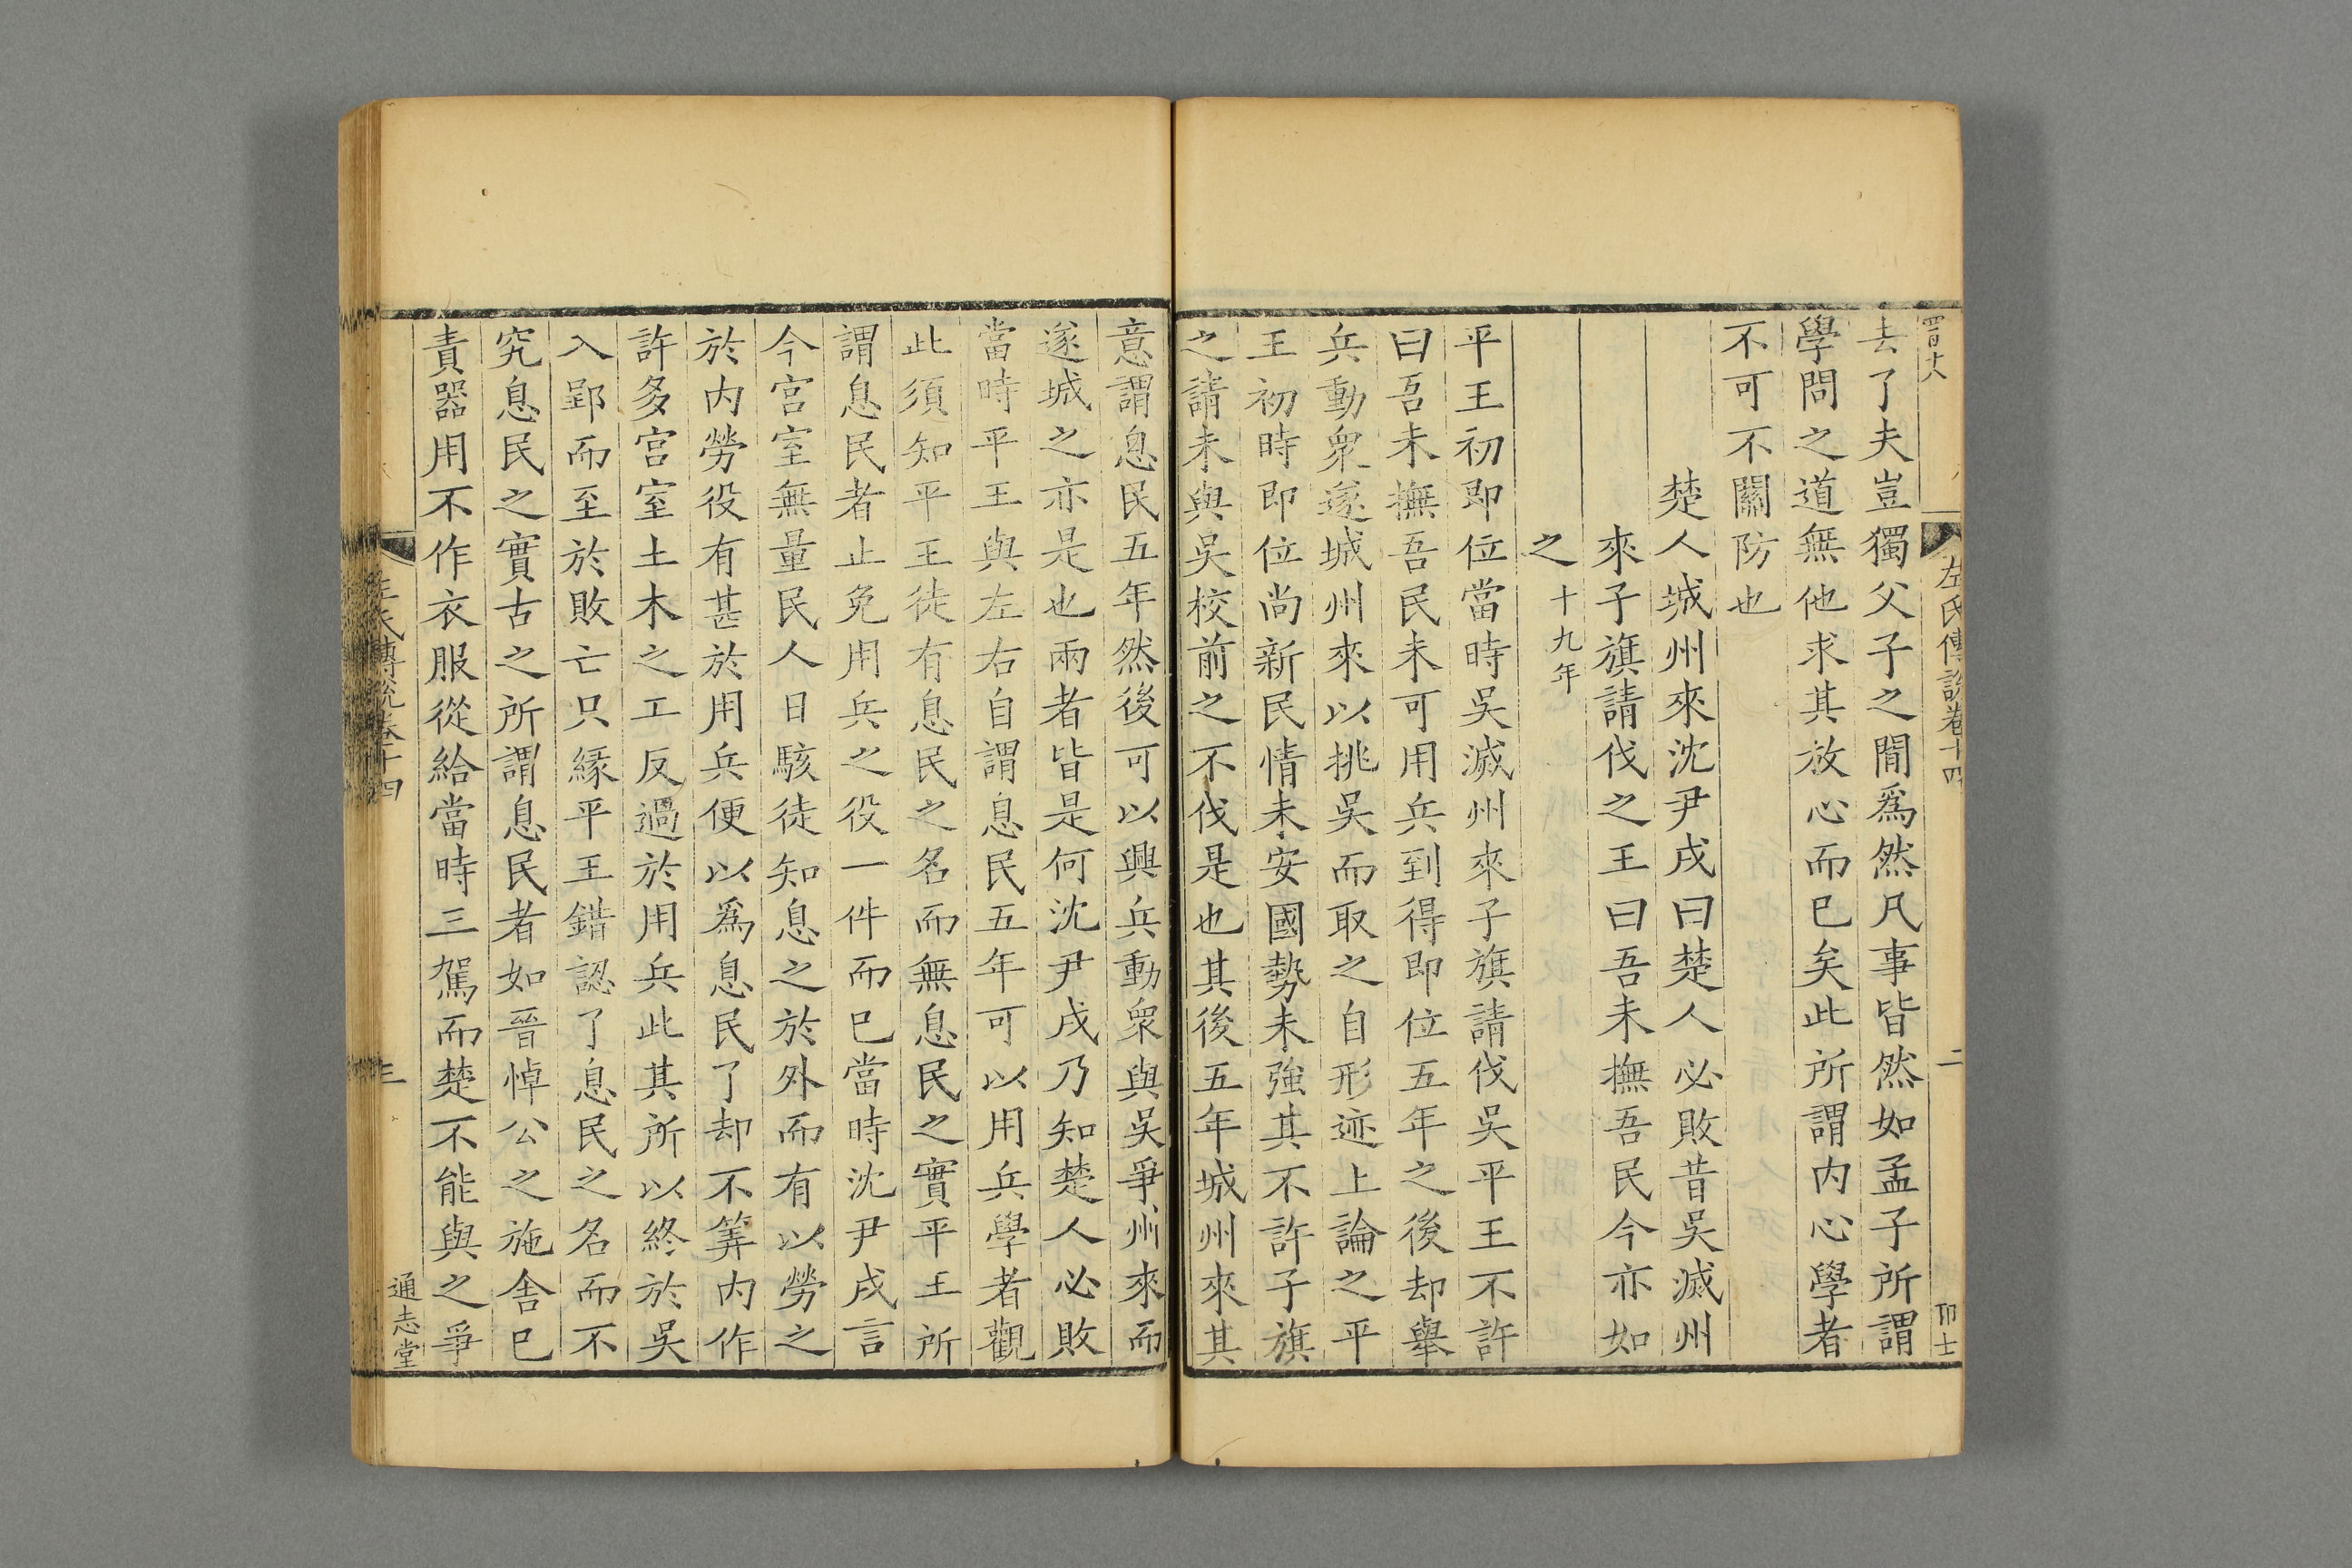 四百十八
左氏傳說卷十四
二
去了夫豈獨父子之間爲然凡事皆然如孟子所謂
學問之道無他求其放心而已矣此所謂内心學者
不可不關防也
楚人城州來沈尹戌曰楚人必敗昔吳滅州
來子旗請伐之王曰吾未撫吾民今亦如
之十九年
平王初即位當時吳滅州來子旗請伐吳平王不許
曰吾未撫吾民未可用兵到得即位五年之後却舉
兵動衆遂城州來以挑吳而取之自形迹上論之平
王初時即位尚新民情未安國勢未強其不許子旗
之請未與吳校前之不伐是也其後五年城州來其
意謂息民五年然後可以興兵動衆與吳爭州來而
遂城之亦是也兩者皆是何沈尹戌乃知楚人必敗
當時平王與左右自謂息民五年可以用兵學者觀
此須知平王徒有息民之名而無息民之實平王所
謂息民者止免用兵之役一件而已當時沈尹戌言
今宮室無量民人日駭徒知息之於外而有以勞之
於内勞役有甚於用兵便以爲息民了却不筭内作
許多宮室土木之工反過於用兵此其所以終於吳
入郢而至於敗亡只緣平王錯認了息民之名而不
究息民之實古之所謂息民者如晉悼公之施舍已
責器用不作衣服從給當時三駕而楚不能與之爭
左氏傳說卷十四
三
通志堂